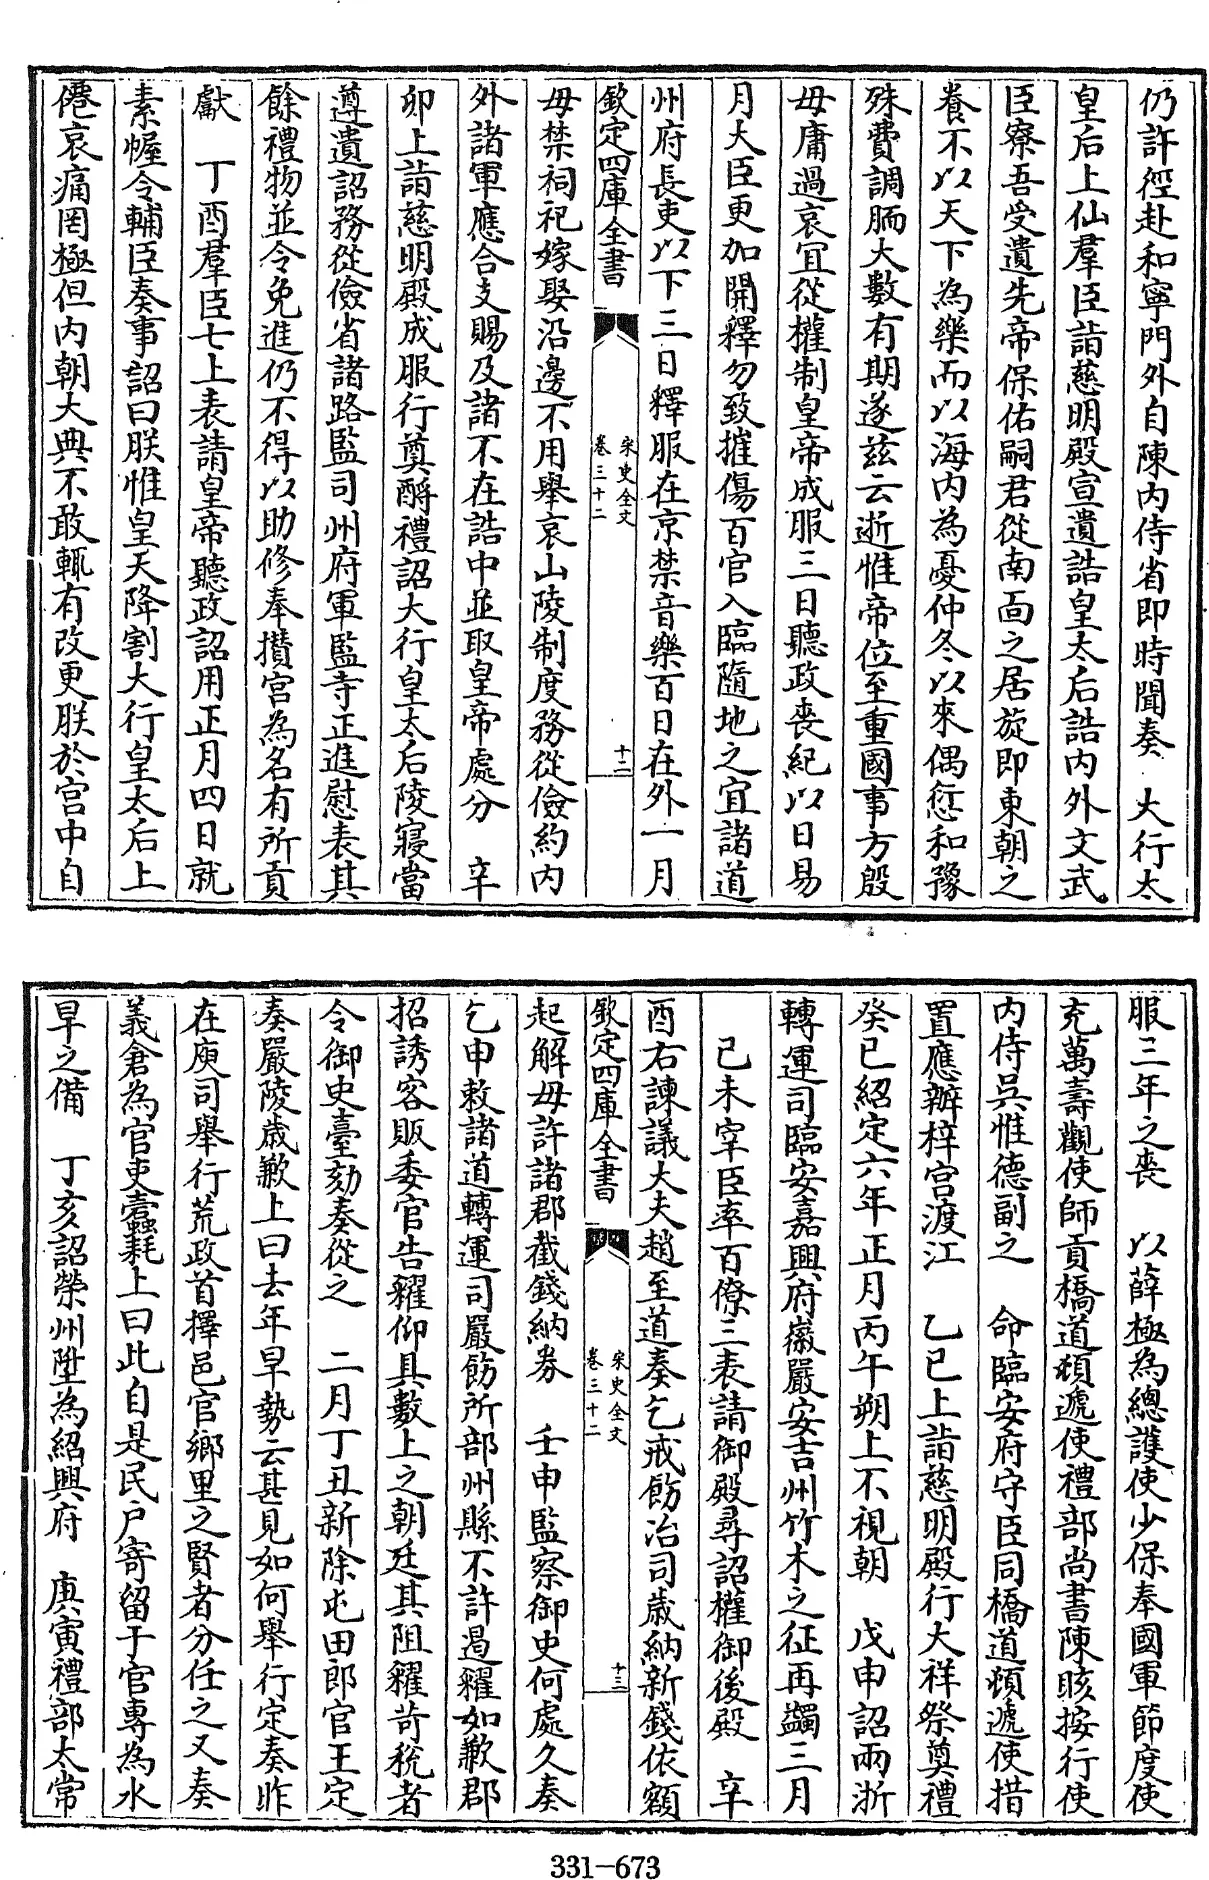 仍許徑赴和寧門外自陳内侍省即時聞奏 大行太
皇后上仙羣臣詣慈明殿宣遺誥皇太后誥内外文武
臣寮吾受遺先帝保佑嗣君從南靣之居旋即東朝之
養不以天下為樂而以海内為憂仲冬以來偶愆和豫
殊費調䏰大數有期遂兹云逝惟帝位至重國事方殷
毋庸過哀宜從權制皇帝成服三日聽政喪紀以日易
月大臣更加開釋勿致摧傷百官入臨隨地之宜諸道
州府長吏以下三日釋服在京禁音樂百日在外一月
欽定四庫全書
宋史全文
卷三十二
十二
毋禁祠祀嫁娶沿邊不用舉哀山陵制度務從儉約内
外諸軍應合支賜及諸不在誥中並取皇帝處分 辛
卯上詣慈明殿成服行奠酹禮詔大行皇太后陵寢當
遵遺詔務從儉省諸路監司州府軍監寺正進慰表其
餘禮物並令免進仍不得以助修奉攢宫為名有所貢
獻 丁酉羣臣七上表請皇帝聽政詔用正月四日就
素幄令輔臣奏事詔曰朕惟皇天降割大行皇太后上
僊哀痛罔極但内朝大典不敢輒有改更朕於宫中自
服三年之喪 以薛極為總護使少保奉國軍節度使
充萬壽觀使師貢橋道頓遞使禮部尚書陳晐按行使
内侍吳惟德副之 命臨安府守臣同橋道頓遞使措
置應辦梓宫渡江 乙巳上詣慈明殿行大祥祭奠禮
癸巳紹定六年正月丙午朔上不視朝 戊申詔兩浙
轉運司臨安嘉興府徽嚴安吉州竹木之征再蠲三月
己未宰臣率百僚三表請御殿尋詔權御後殿 辛
酉右諫議大夫趙至道奏乞戒飭冶司歲納新錢依額
欽定四庫全書
宋史全文
卷三十二
十三
起解毋許諸郡截錢納劵 壬申監察御史何處久奏
乞申敕諸道轉運司嚴飭所部州縣不許遏糴如歉郡
招誘客販委官告糴仰具數上之朝廷其阻糴苛稅者
令御史臺劾奏從之 二月丁丑新除屯田郎官王定
奏嚴陵歲歉上曰去年旱勢云甚見如何舉行定奏昨
在庾司舉行荒政首擇邑官鄉里之賢者分任之又奏
義倉為官吏蠧耗上曰此自是民户寄留于官專為水
旱之備 丁亥詔榮州陞為紹興府 庚寅禮部太常
331-673